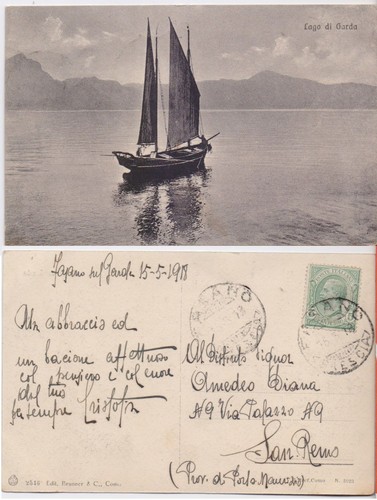 Lago di Garda
Fasano sul Garda 15-5-1918
FASANO
Un abbraccio ed
un bacione affettuoso
col pensiero e col cuore
dal tuo
per sempre Cristofor
FASANO
BRESCIA
Al Distinto signor
Amedeo Diana
N9 Via Palazzo N9
San Remo
(Prov. di Porto Maurizio)
9514 Edit. Brunner & C., Como.